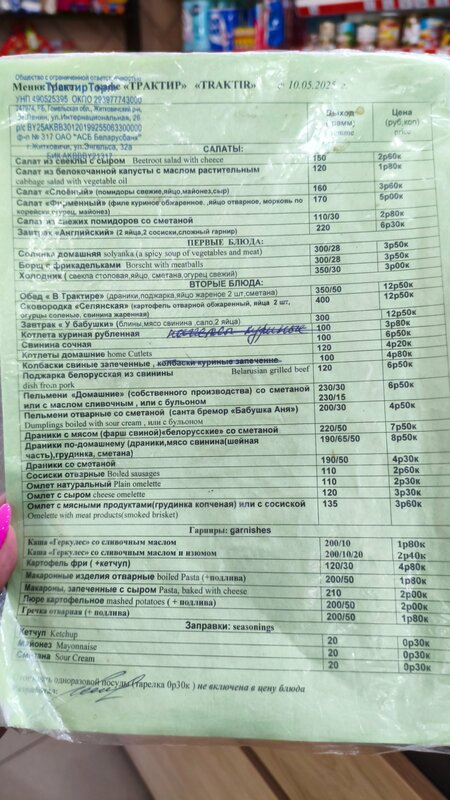 Общество с ограниченной ответственностью
Меню кафе «ТРАКТИР» «TRAKTIR» с 10.05.2025 г.
ТрактирТорг
УНП 490525395 ОКПО 293977743000
247974, РБ, Гомельская обл., Житковичский р-н,
ул. Интернациональная, 26
р/с BY25AKBB30120199255063300000
ф-л № 317 ОАО "АСБ Беларусбанк"
г.Житковичи, ул.Энгельса, 32а
БИК AKBBBY21317
Выход (грамм) Цена (руб,коп) price
САЛАТЫ:
Салат из свеклы с сыром Beetroot salad with cheese 150 2р60к
Салат из белокочанной капусты с маслом растительным 120 1р80к
cabbage salad with vegetable oil
Салат «Слоёный» (помидоры свежие,яйцо,майонез,сыр) 160 3р60к
Салат «Фирменный» (филе куриное обжаренное, ,яйцо отварное, морковь по 170 5р00к
корейски,огурец, майонез)
Салат из свежих помидоров со сметаной 110/30 2р80к
Завтрак «Английский» (2 яйца,2 сосиски,сложный гарнир) 220 6р30к
ПЕРВЫЕ БЛЮДА:
Солянка домашняя solyanka (a spicy soup of vegetables and meat) 300/28 3р50к
Борщ с фрикадельками Borscht with meatballs 300/28 3р50к
Холодник ( свекла столовая,яйцо, сметана,огурец свежий) 350/30 3р00к
ВТОРЫЕ БЛЮДА:
Обед «В Трактире» (драники,поджарка,яйцо жареное 2 шт,сметана) 350/50 12р50к
Сковородка «Селянская» (картофель отварной обжаренный, яйца 2 шт, 400 12р50к
огурцы соленые, свинина жаренная)
Завтрак «У Бабушки» (блины,мясо свинина ,сало,2 яйца) 300 12р50к
Котлета куриная рубленная 100 3р80к
Свинина сочная 100 6р50к
Котлеты домашние home Cutlets 120 4р20к
Колбаски свиные запеченные , колбаски куриные запеченные 100 4р80к
Поджарка белорусская из свинины Belarusian grilled beef 120 6р50к
dish from pork
Пельмени «Домашние» (собственного производства) со сметаной 230/30 6р50к
или с маслом сливочным , или с бульоном 230/15
Пельмени отварные со сметаной (санта бремор «Бабушка Аня») 200/30 4р50к
Dumplings boiled with sour cream , или с бульоном
Драники с мясом (фарш свиной)«белорусские» со сметаной 220/50 7р50к
Драники по-домашнему (драники,мясо свинина(шейная 190/65/50 8р50к
часть),грудинка, сметана)
Драники со сметаной 190/50 4р30к
Сосиски отварные Boiled sausages 110 2р60к
Омлет натуральный Plain omelette 110 2р30к
Омлет с сыром cheese omelette 120 3р30к
Омлет с мясными продуктами(грудинка копченая) или с сосиской 135 3р60к
Omelette with meat products(smoked brisket)
Гарниры: garnishes
Каша «Геркулес» со сливочным маслом 200/10 1р80к
Каша «Геркулес» со сливочным маслом и изюмом 200/10/20 2р40к
Картофель фри ( +кетчуп) 120/30 4р80к
Макаронные изделия отварные boiled Pasta (+подлива) 200/50 1р80к
Макароны, запеченные с сыром Pasta, baked with cheese 210 2р00к
Пюре картофельное mashed potatoes ( + подлива) 200/50 2р00к
Гречка отварная (+ подлива) 200/50 1р80к
Заправки: seasonings
Кетчуп Ketchup 20 0р30к
Майонез Mayonnaise 20 0р30к
Сметана Sour Cream 20 0р30к
одноразовой посуды (тарелка 0р30к ) не включена в цену блюда